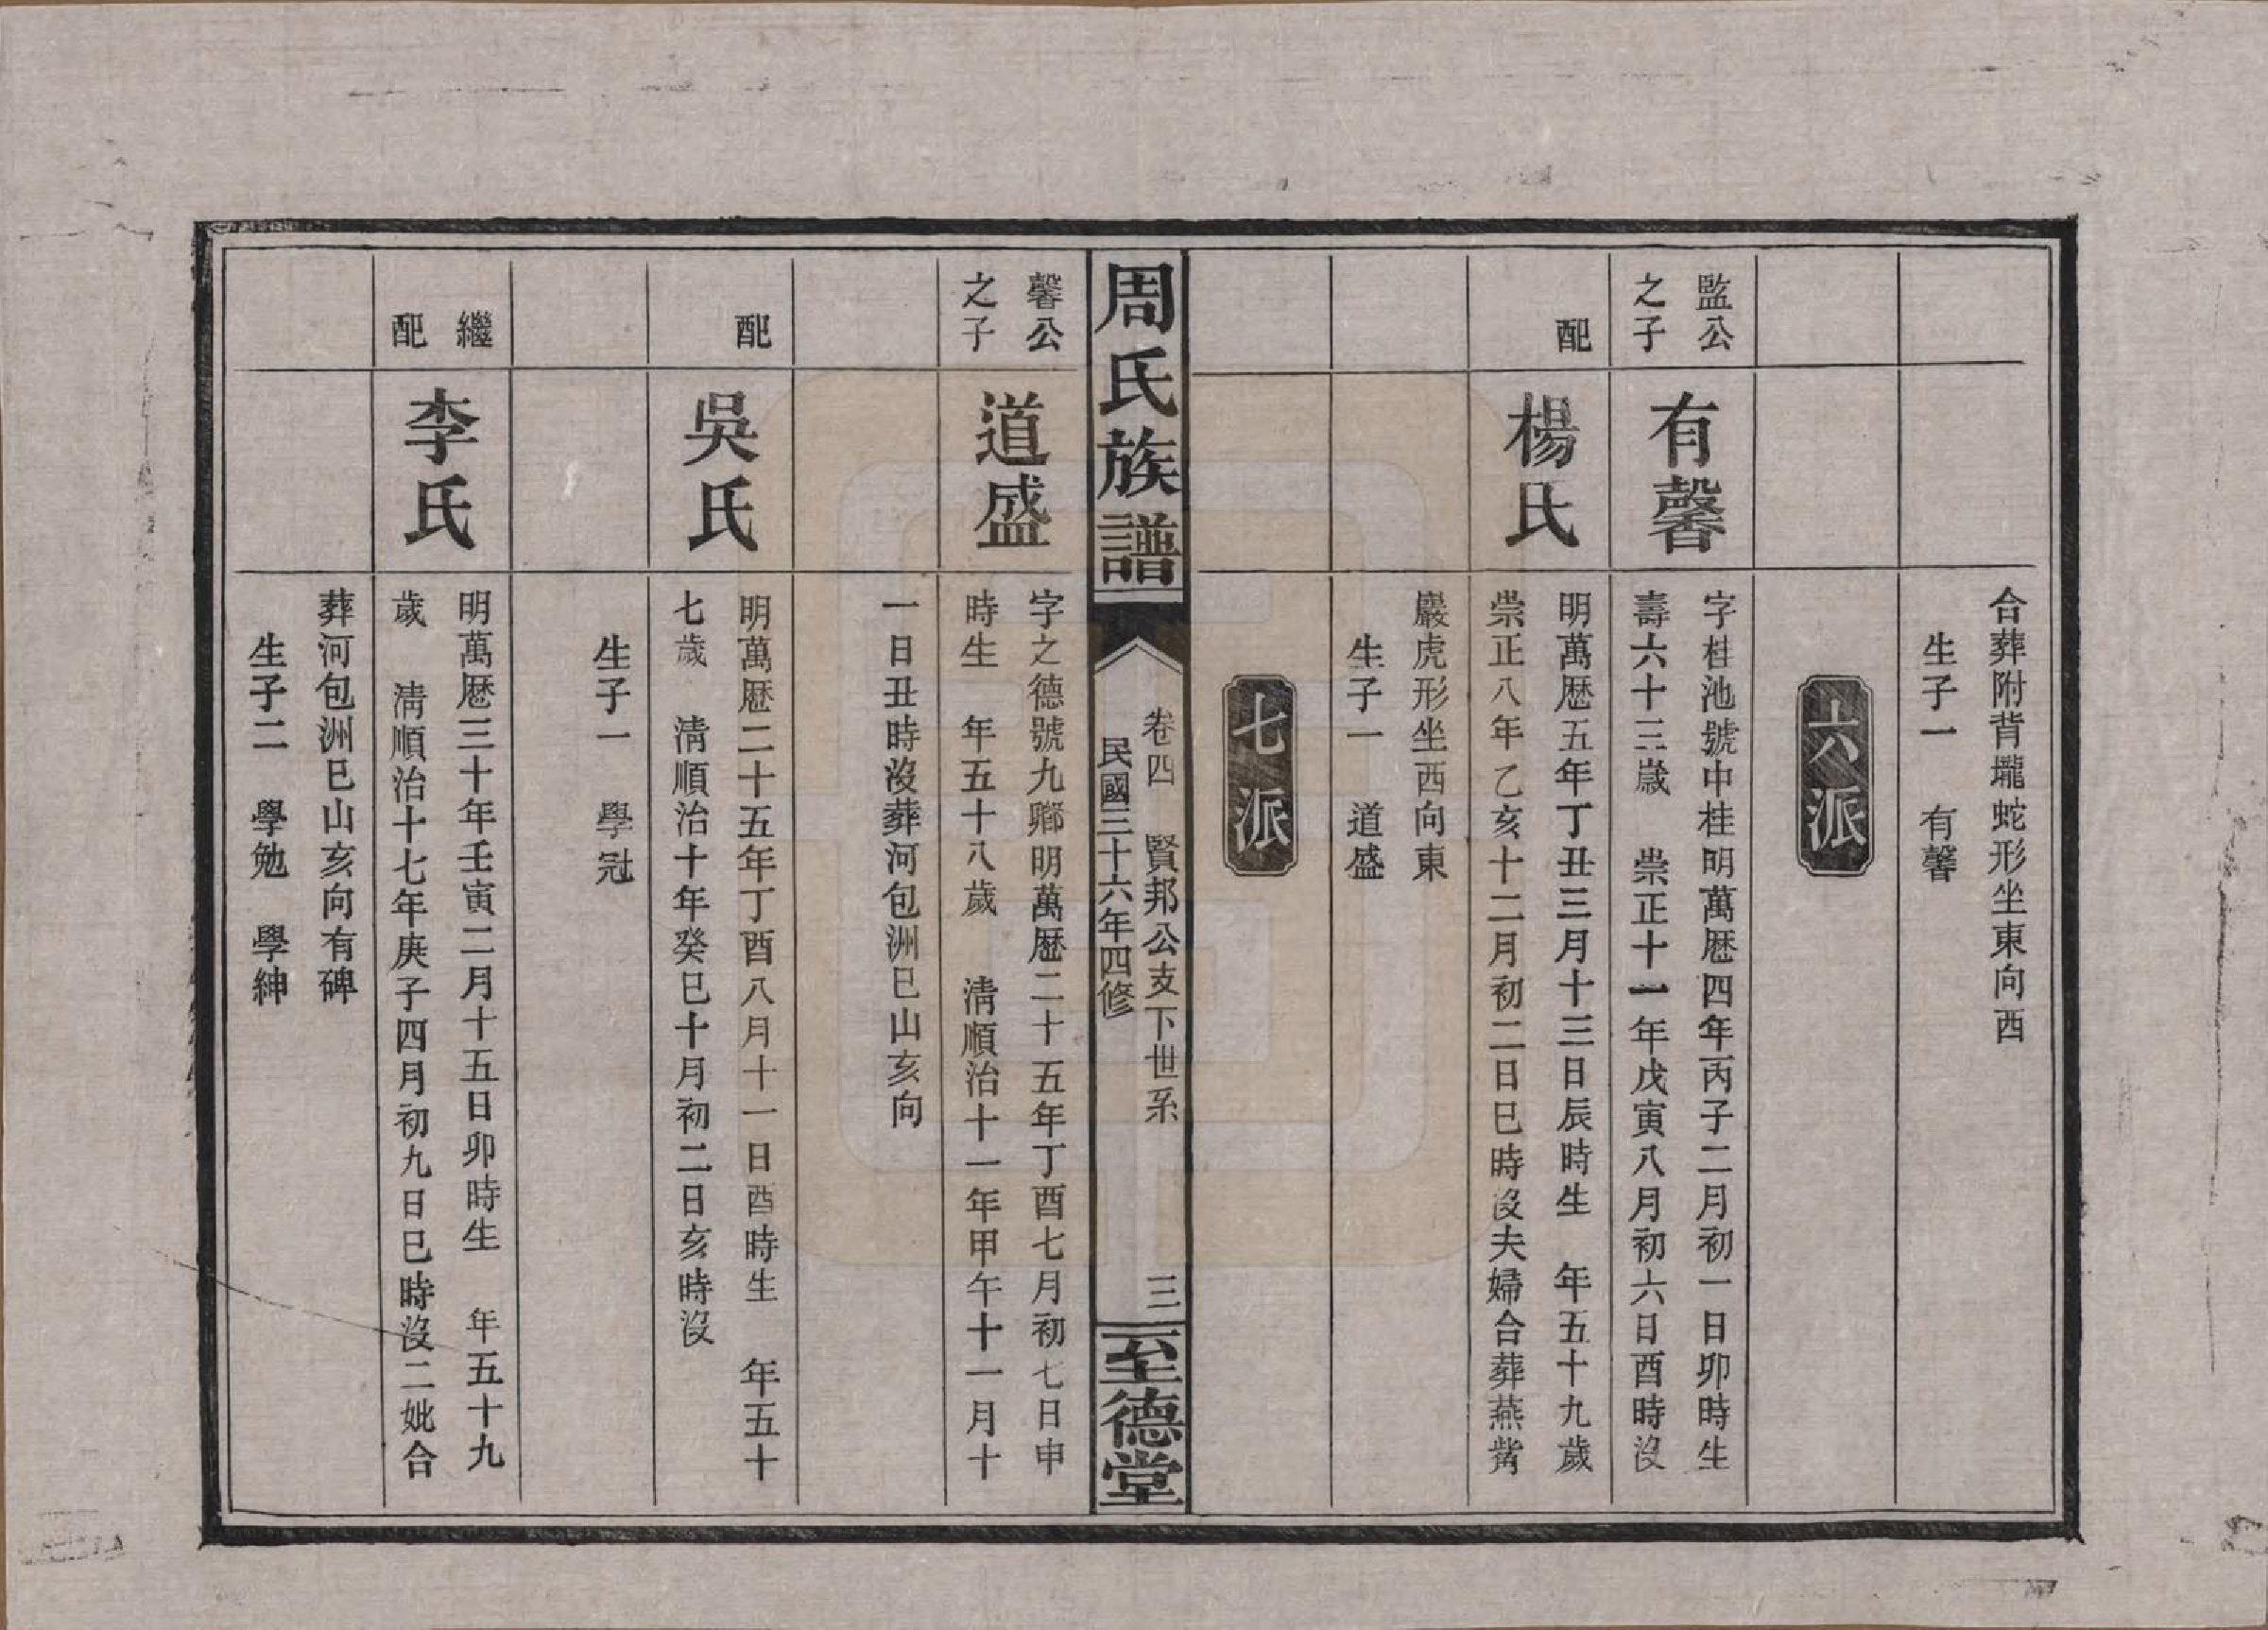 合葬附背壠蛇形坐東向西
生子一　有馨
六派
監公
之子
有馨
字桂池號中桂明萬曆四年丙子二月初一日卯時生
壽六十三歲　崇正十一年戊寅八月初六日酉時沒
配
楊氏
明萬曆五年丁丑三月十三日辰時生　年五十九歲
崇正八年乙亥十二月初二日巳時沒夫婦合葬燕觜
巖虎形坐西向東
生子一　道盛
七派
周氏族譜
卷四　賢邦公支下世系　三
民國三十六年四修
至德堂
馨公
之子
道盛
字之德號九鄉明萬曆二十五年丁酉七月初七日申
時生　年五十八歲　清順治十一年甲午十一月十
一日丑時沒葬河包洲巳山亥向
配
吳氏
明萬曆二十五年丁酉八月十一日酉時生　年五十
七歲　清順治十年癸巳十月初二日亥時沒
生子一　學冠
繼
配
李氏
明萬曆三十年壬寅二月十五日卯時生　年五十九
歲　清順治十七年庚子四月初九日巳時沒二妣合
葬河包洲巳山亥向有碑
生子二　學勉　學紳